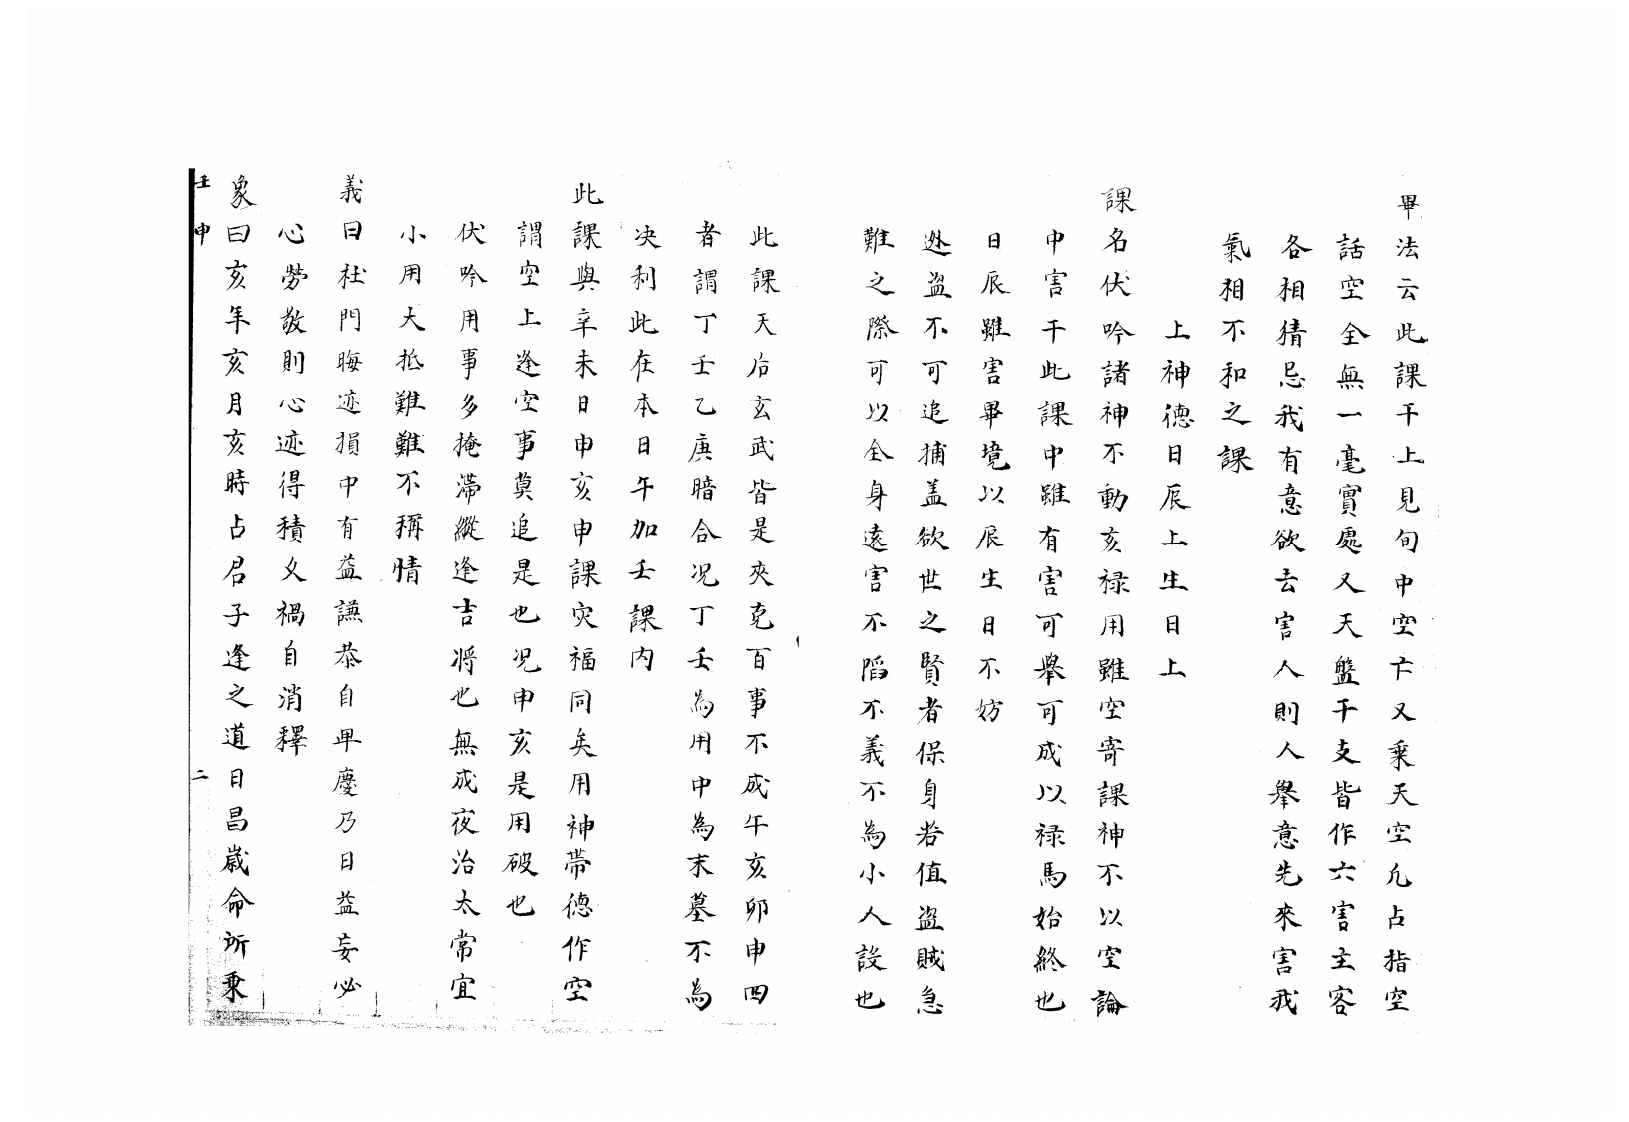 畢法云此課干上見旬中空亡又乗天空凢占指空
話空全無一毫實處又天盤干支皆作六害主客
各相猜忌我有意欲去害人則人舉意先來害我
氣相不和之課
上神德日辰上生日上
課名伏吟諸神不動亥禄用雖空寄課神不以空論
申害干此課中雖有害可舉可成以禄馬始終也
日辰雖害畢境以辰生日不妨
迯盜不可追捕盖欲世之賢者保身若值盜賊急
難之際可以全身遠害不陷不義不為小人設也
此課天后玄武皆是夾克百事不成午亥卯申四
者謂丁壬乙庚暗合况丁壬為用中為末墓不為
决利此在本日午加壬課内
此課與辛未日申亥申課灾福同矣用神帶德作空
謂空上逢空事莫追是也况申亥是用破也
伏吟用事多掩滞縱逢吉將也無成夜治太常宜
小用大抵難難不稱情
義曰杜門晦迹損中有益謙恭自卑慶乃日益妄必
心勞敬則心迹得積乂禍自消釋
象曰亥年亥月亥時占君子逢之道日昌歲命所乗
壬申 二